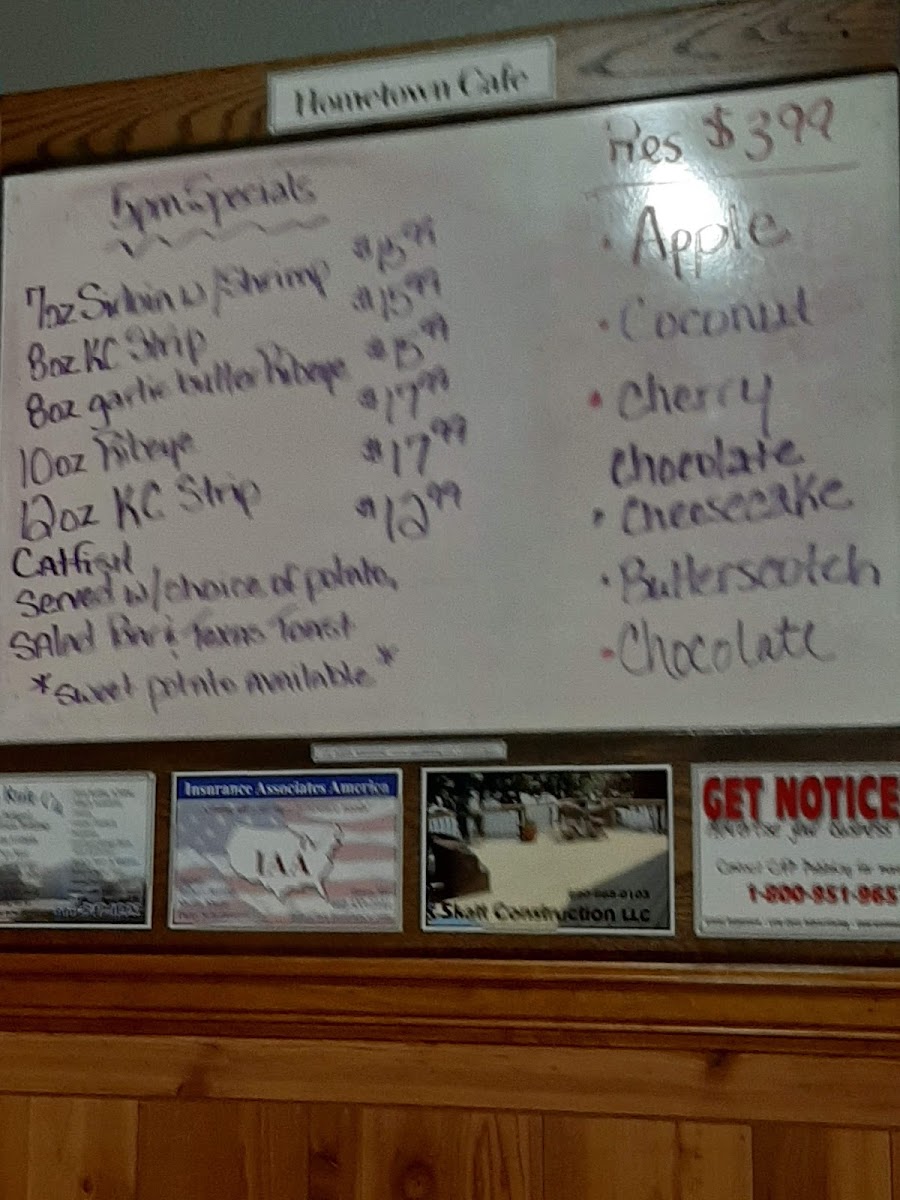 Hometown Cafe
5pm Specials
7oz Sirloin w/Shrimp $15⁹⁹
8oz KC Strip $15⁹⁹
8oz garlic butter Ribeye $15⁹⁹
10oz Ribeye $17⁹⁹
12oz KC Strip $17⁹⁹
Catfish $12⁹⁹
Served w/choice of potato,
Salad Bar & Texas Toast
*Sweet potato available*
Pies $3⁹⁹
• Apple
• Coconut
• Cherry
Chocolate
• Cheesecake
• Butterscotch
• Chocolate
Insurance Associates America
IAA
Skaff Construction LLC
GET NOTICE
Advertise your business
1-800-951-965